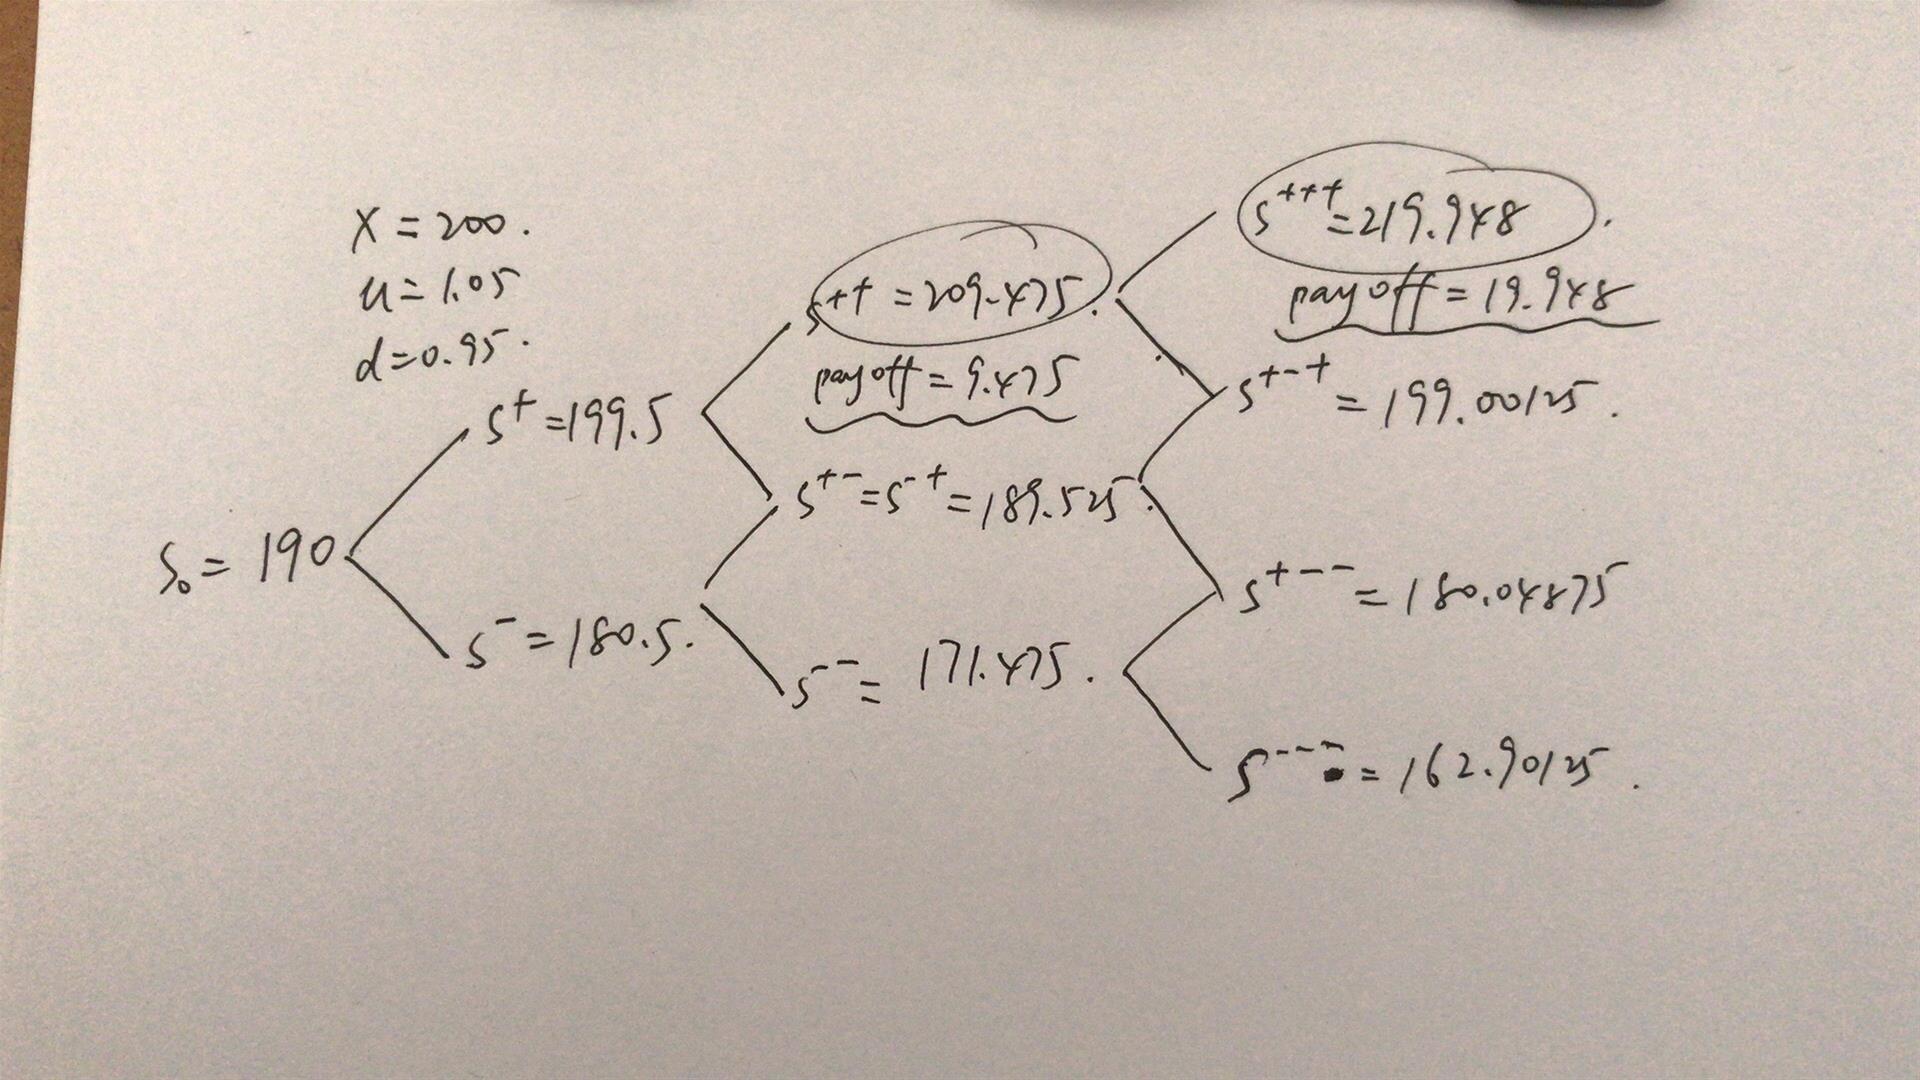 X = 200.
u = 1.05
d = 0.95.
S₀ = 190
S⁺ = 199.5
S⁻ = 180.5.
S⁺⁺ = 209.475.
payoff = 9.475
S⁺⁻ = S⁻⁺ = 189.525.
S⁻⁻ = 171.475.
S⁺⁺⁺ = 219.948.
payoff = 19.948
S⁺⁻⁺ = 199.00125.
S⁺⁻⁻ = 180.04875
S⁻⁻⁻ = 162.90125.